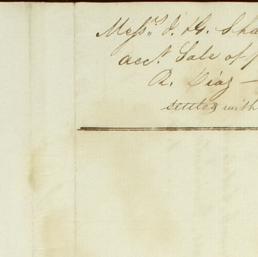 Messrs. J. & G. Sha
acct. Sale of
R. Diaz —
settled with